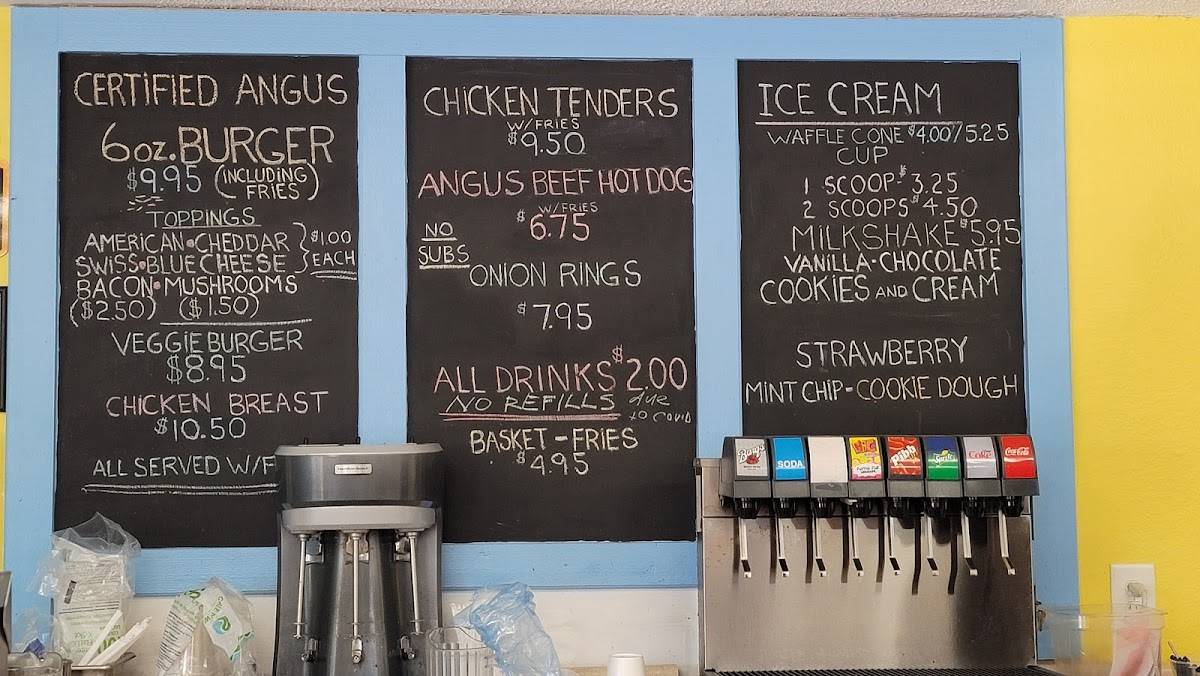 CERTIFIED ANGUS
6oz. BURGER
$9.95 (INCLUDING
FRIES)
TOPPINGS
AMERICAN•CHEDDAR } $1.00
SWISS•BLUE CHEESE } EACH
BACON•MUSHROOMS
($2.50) ($1.50)
VEGGIE BURGER
$8.95
CHICKEN BREAST
$10.50
ALL SERVED W/F
CHICKEN TENDERS
W/FRIES
$9.50
ANGUS BEEF HOT DOG
W/FRIES
$6.75
NO
SUBS
ONION RINGS
$7.95
ALL DRINKS $2.00
NO REFILLS due
to covid
BASKET-FRIES
$4.95
ICE CREAM
WAFFLE CONE $4.00/5.25
CUP
1 SCOOP-$3.25
2 SCOOPS $4.50
MILKSHAKE $5.95
VANILLA-CHOCOLATE
COOKIES AND CREAM
STRAWBERRY
MINT CHIP-COOKIE DOUGH
Barq's
SODA
Pibb
Sprite
Diet Coke
Coca-Cola